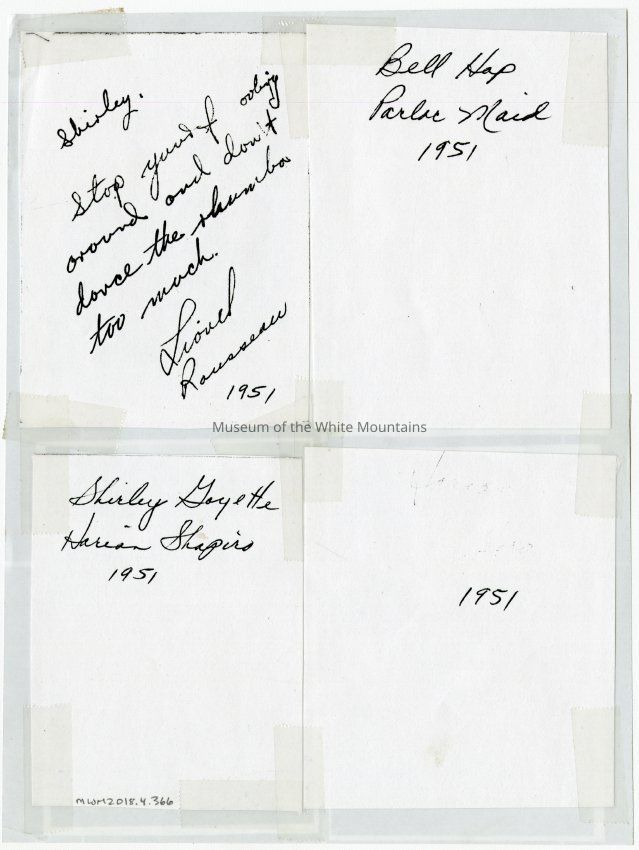 Shirley.
Stop yourself
around and don't
dance the rhumba
too much.
Lionel
Rousseau
1951
Bell Hop
Parlor Maid
1951
Museum of the White Mountains
Shirley Goyette
Harian Shapiro
1951
1951
MWM2018.4.366